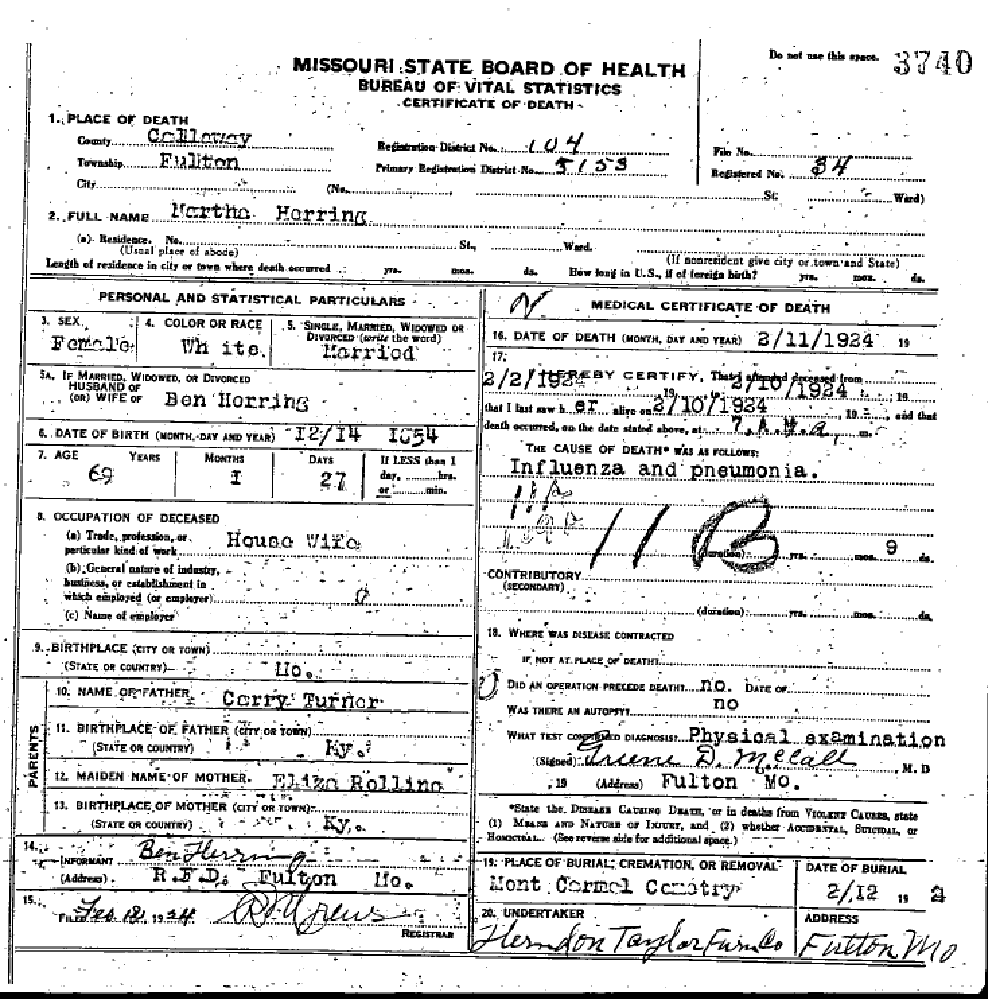 Do not use this space. 3740
MISSOURI STATE BOARD OF HEALTH
BUREAU OF VITAL STATISTICS
CERTIFICATE OF DEATH
1. PLACE OF DEATH
County Callaway Registration District No. 104 File No.
Township Fullton Primary Registration District No. 5153 Registered No. 34
City (No. St. Ward)
2. FULL NAME Martha Herring
(a) Residence. No. St., Ward.
(Usual place of abode) (If nonresident give city or town and State)
Length of residence in city or town where death occurred yrs. mos. ds. How long in U.S., if of foreign birth? yrs. mos. ds.
PERSONAL AND STATISTICAL PARTICULARS
3. SEX 4. COLOR OR RACE 5. SINGLE, MARRIED, WIDOWED OR
DIVORCED (write the word)
Female White. Married
5A. IF MARRIED, WIDOWED, OR DIVORCED
HUSBAND OF
(OR) WIFE OF Ben Herring
6. DATE OF BIRTH (MONTH, DAY AND YEAR) 12/14 1854
7. AGE YEARS MONTHS DAYS If LESS than 1
day, hrs.
or min.
69 I 27
8. OCCUPATION OF DECEASED
(a) Trade, profession, or
particular kind of work House Wife
(b) General nature of industry,
business, or establishment in
which employed (or employer)
(c) Name of employer
9. BIRTHPLACE (CITY OR TOWN)
(STATE OR COUNTRY) Mo.
PARENTS
10. NAME OF FATHER Carry Turner
11. BIRTHPLACE OF FATHER (CITY OR TOWN)
(STATE OR COUNTRY) Ky.
12. MAIDEN NAME OF MOTHER Eliza Rollins
13. BIRTHPLACE OF MOTHER (CITY OR TOWN)
(STATE OR COUNTRY) Ky.
14. INFORMANT Ben Herring
(Address) R.F.D. Fulton Mo.
15. FILED Feb 12, 1924
REGISTRAR
MEDICAL CERTIFICATE OF DEATH
16. DATE OF DEATH (MONTH, DAY AND YEAR) 2/11/1924 19
17.
I HEREBY CERTIFY, That I attended deceased from
2/2/1924 19 2/10/1924, 19
that I last saw her alive on 2/10/1924, 19, and that
death occurred, on the date stated above, at 7 A.M. m.
THE CAUSE OF DEATH* WAS AS FOLLOWS:
Influenza and pneumonia.
11 B
(duration) yrs. mos. 9 ds.
CONTRIBUTORY
(SECONDARY)
(duration) yrs. mos. ds.
18. WHERE WAS DISEASE CONTRACTED
IF NOT AT PLACE OF DEATH?
DID AN OPERATION PRECEDE DEATH? no. DATE OF
WAS THERE AN AUTOPSY? no
WHAT TEST CONFIRMED DIAGNOSIS? Physical examination
(Signed) D. McCall M. D
, 19 (Address) Fulton Mo.
*State the DISEASE CAUSING DEATH, or in deaths from VIOLENT CAUSES, state
(1) MEANS AND NATURE OF INJURY, and (2) whether ACCIDENTAL, SUICIDAL, or
HOMICIDAL. (See reverse side for additional space.)
19. PLACE OF BURIAL, CREMATION, OR REMOVAL DATE OF BURIAL
Mont Carmel Cemetry 2/12 19 2
20. UNDERTAKER ADDRESS
Herndon Taylor Furn Co Fulton Mo